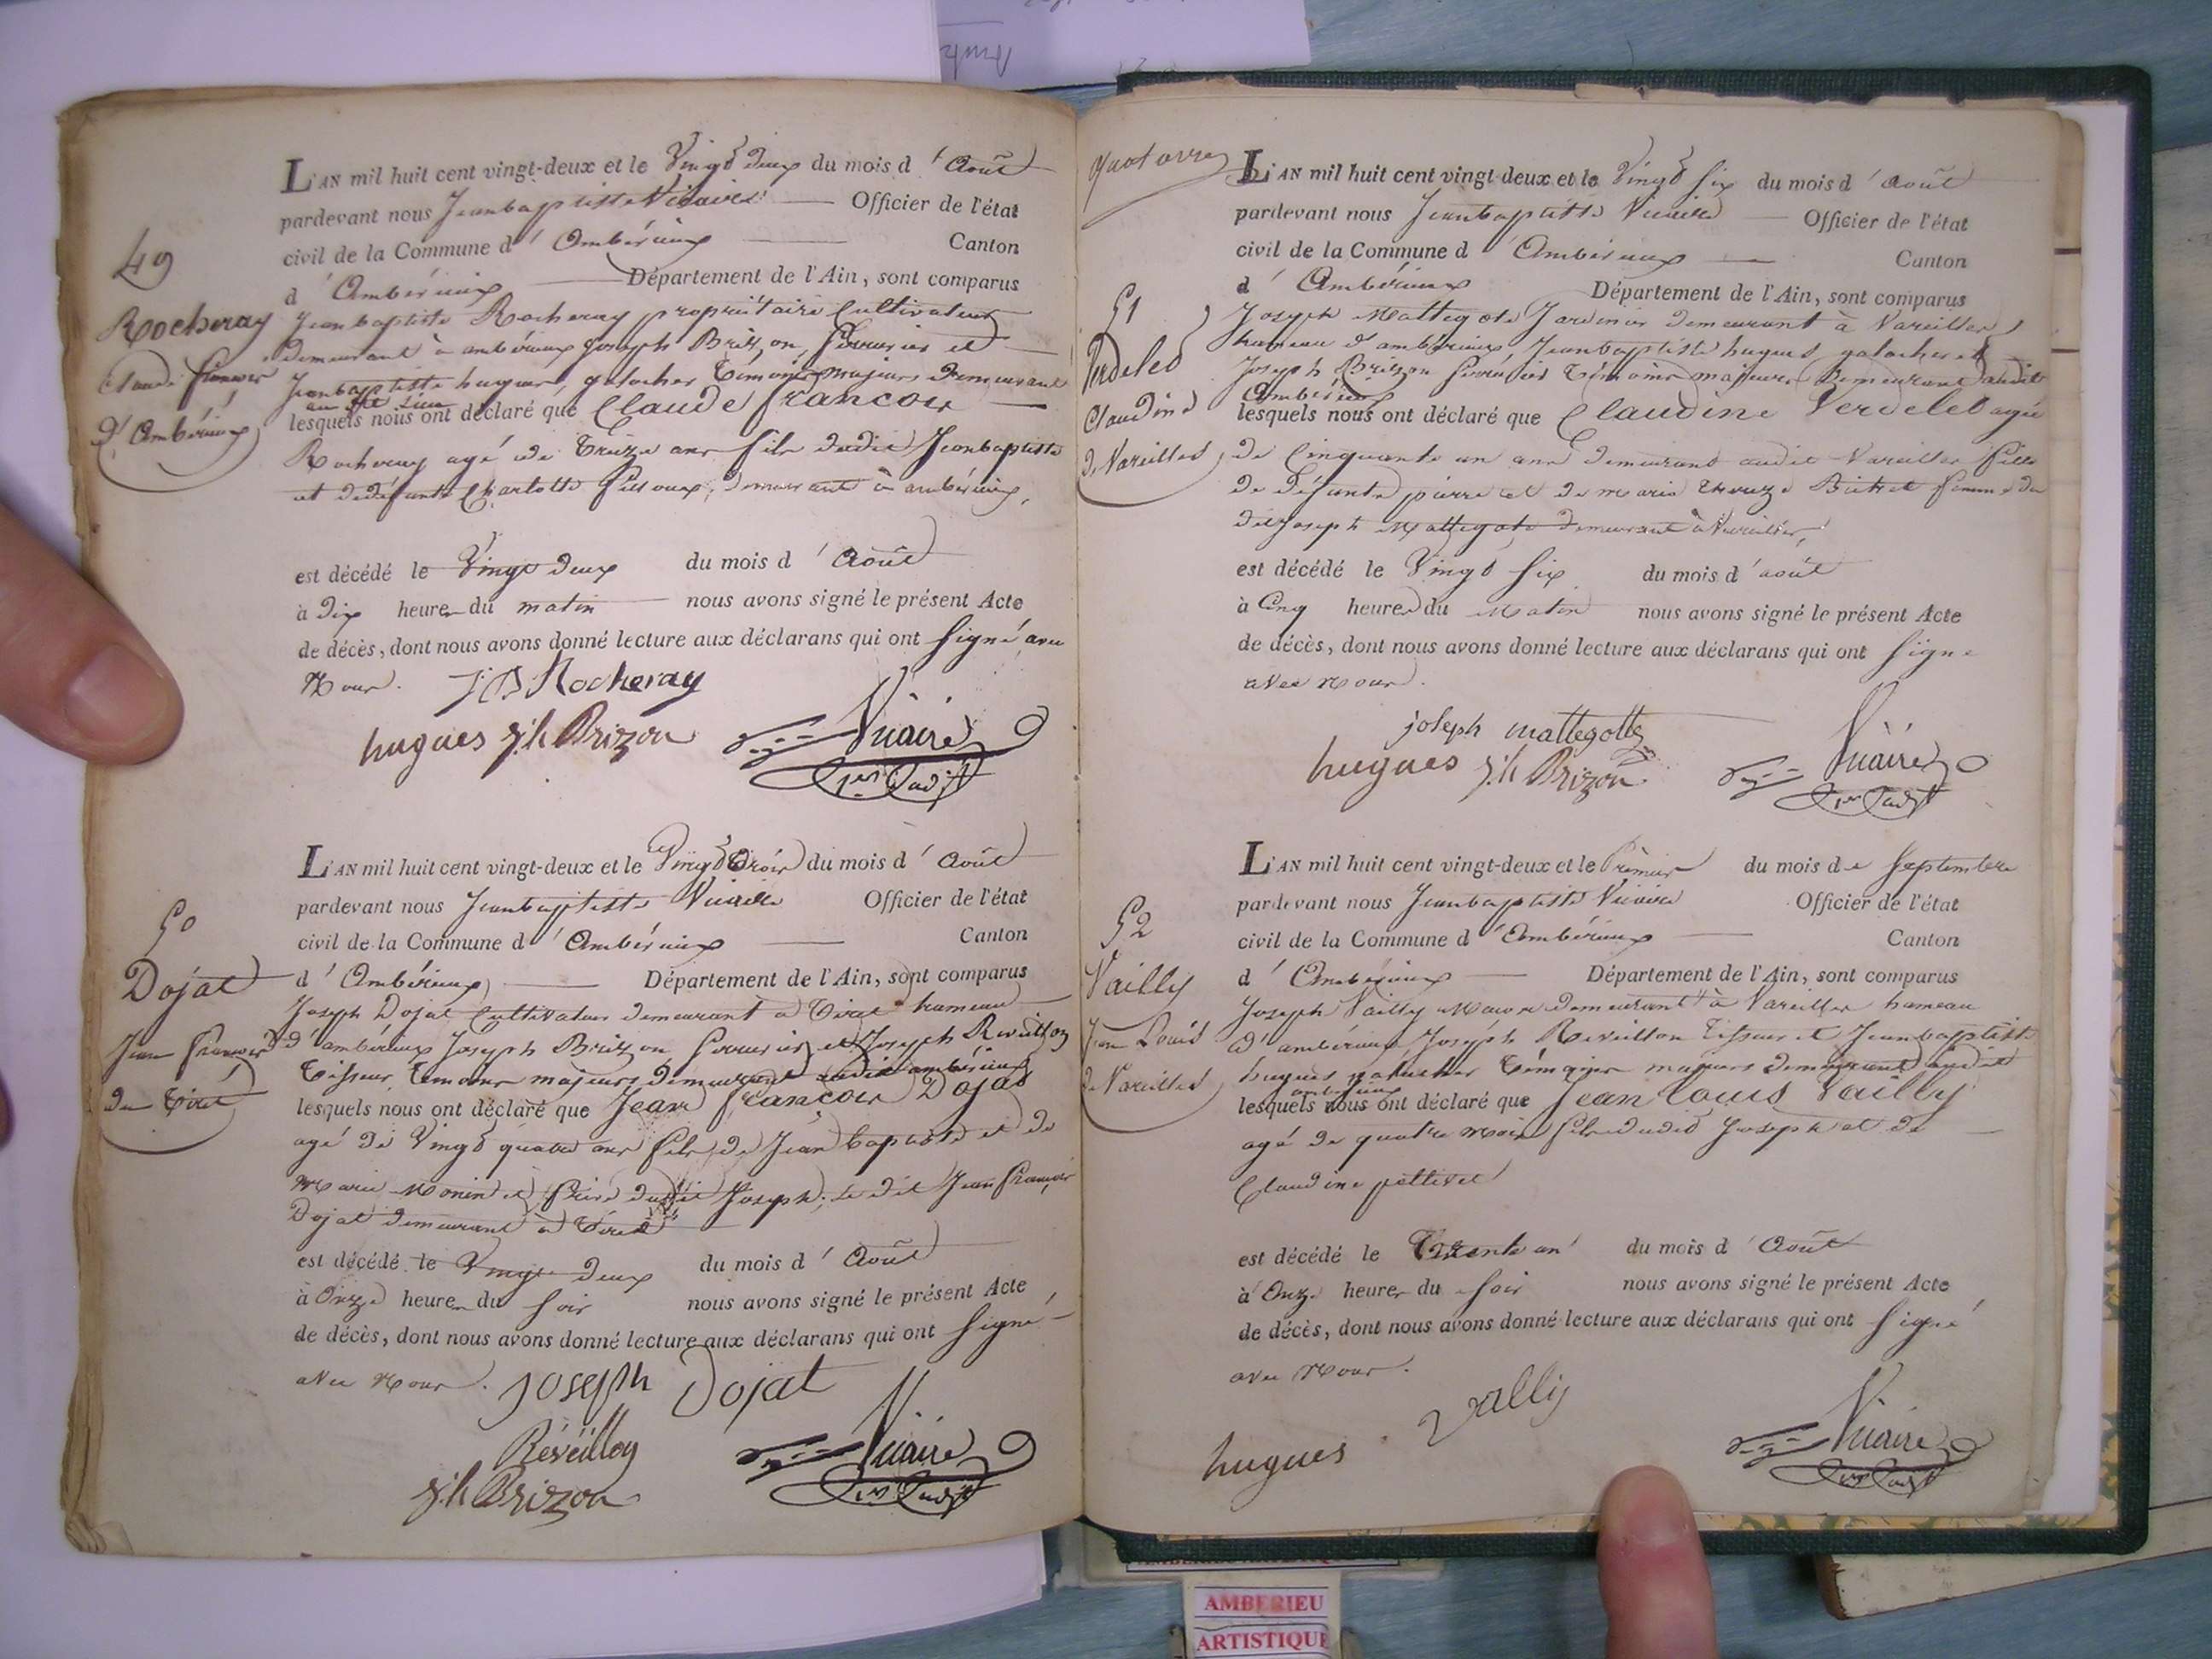 49
Rocheray
Claude françois
d'Ambérieux
L'AN mil huit cent vingt-deux et le Vingt deux du mois d'Août
pardevant nous Jeanbaptiste Vicaire Officier de l'état
civil de la Commune d'Ambérieux Canton
d'Ambérieux Département de l'Ain, sont comparus
Jeanbaptiste Rocheray propriétaire Cultivateur
demeurant à ambérieux Joseph Brizon, Serrurier et
Jeanbaptiste hugues, galocher Témoins majeurs Demeurant
au dit lieu
lesquels nous ont déclaré que Claude francois
Rocheray agé de Treize ans fils dudit Jeanbaptiste
et de défunte Charlotte demeurant à ambérieux,
est décédé le Vingt deux du mois d'Août
à Dix heures du matin nous avons signé le présent Acte
de décès, dont nous avons donné lecture aux déclarans qui ont Signé avec
Nous. J B Rocheray
hugues Jh Brizon Vicaire
1er Adjt
50
Dojat
Jean François
de Tiret
L'AN mil huit cent vingt-deux et le Vingt Trois du mois d'Août
pardevant nous Jeanbaptiste Vicaire Officier de l'état
civil de la Commune d'Ambérieux Canton
d'Ambérieux Département de l'Ain, sont comparus
Joseph Dojat Cultivateur demeurant à Tiret hameau
d'ambérieux Joseph Brizon Serrurier et Joseph Reveillon
Tisseur, Temoins majeurs demeurant audit ambérieux
lesquels nous ont déclaré que Jean francois Dojat
agé de Vingt quatre ans fils de Jean baptiste et de
Marie Monin et frère dudit Joseph; le dit Jean François
Dojat demeurant à Tiret
est décédé le Vingt Deux du mois d'Août
à Onze heures du soir nous avons signé le présent Acte
de décès, dont nous avons donné lecture aux déclarans qui ont Signé
avec Nous. Joseph Dojat
Réveillon
Jh Brizon Vicaire
1er Adjt
quatorze
51
Verdelet
Claudine
de Vareilles
L'AN mil huit cent vingt-deux et le Vingt six du mois d'Août
pardevant nous Jeanbaptiste Vicaire Officier de l'état
civil de la Commune d'Ambérieux Canton
d'Ambérieux Département de l'Ain, sont comparus
Joseph Mattegote Jardinier demeurant à Vareilles
hameau d'ambérieux, Jeanbaptiste hugues galocher et
Joseph Brizon Serrurier Témoins majeurs Demeurant audit
Ambérieux
lesquels nous ont déclaré que Claudine Verdelet agée
de Cinquante un ans demeurant audit Vareilles fille
de défunts pierre et de Marie femme du
dit Joseph Mattegote demeurant à Vareilles,
est décédé le Vingt six du mois d'août
à Cinq heures du Matin nous avons signé le présent Acte
de décès, dont nous avons donné lecture aux déclarans qui ont signé
avec nous.
joseph mattegotte
hugues Jh Brizon Vicaire
1er Adjt
52
Vailly
Jean Louis
de Vareilles
L'AN mil huit cent vingt-deux et le Premier du mois de Septembre
pardevant nous Jeanbaptiste Vicaire Officier de l'état
civil de la Commune d'Ambérieux Canton
d'Ambérieux Département de l'Ain, sont comparus
Joseph Vailly Maçon demeurant à Vareilles hameau
d'ambérieux, Joseph Reveillon Tisseur et Jeanbaptiste
hugues galocher Témoins majeurs demeurant audit
ambérieux
lesquels nous ont déclaré que Jean Louis Vailly
agé de quatre mois fils dudit Joseph et de
Claudine
est décédé le Trente un du mois d'Août
à Onze heures du soir nous avons signé le présent Acte
de décès, dont nous avons donné lecture aux déclarans qui ont signé
avec Nous.
Vally
hugues Vicaire
1er Adjt
AMBERIEU
ARTISTIQUE